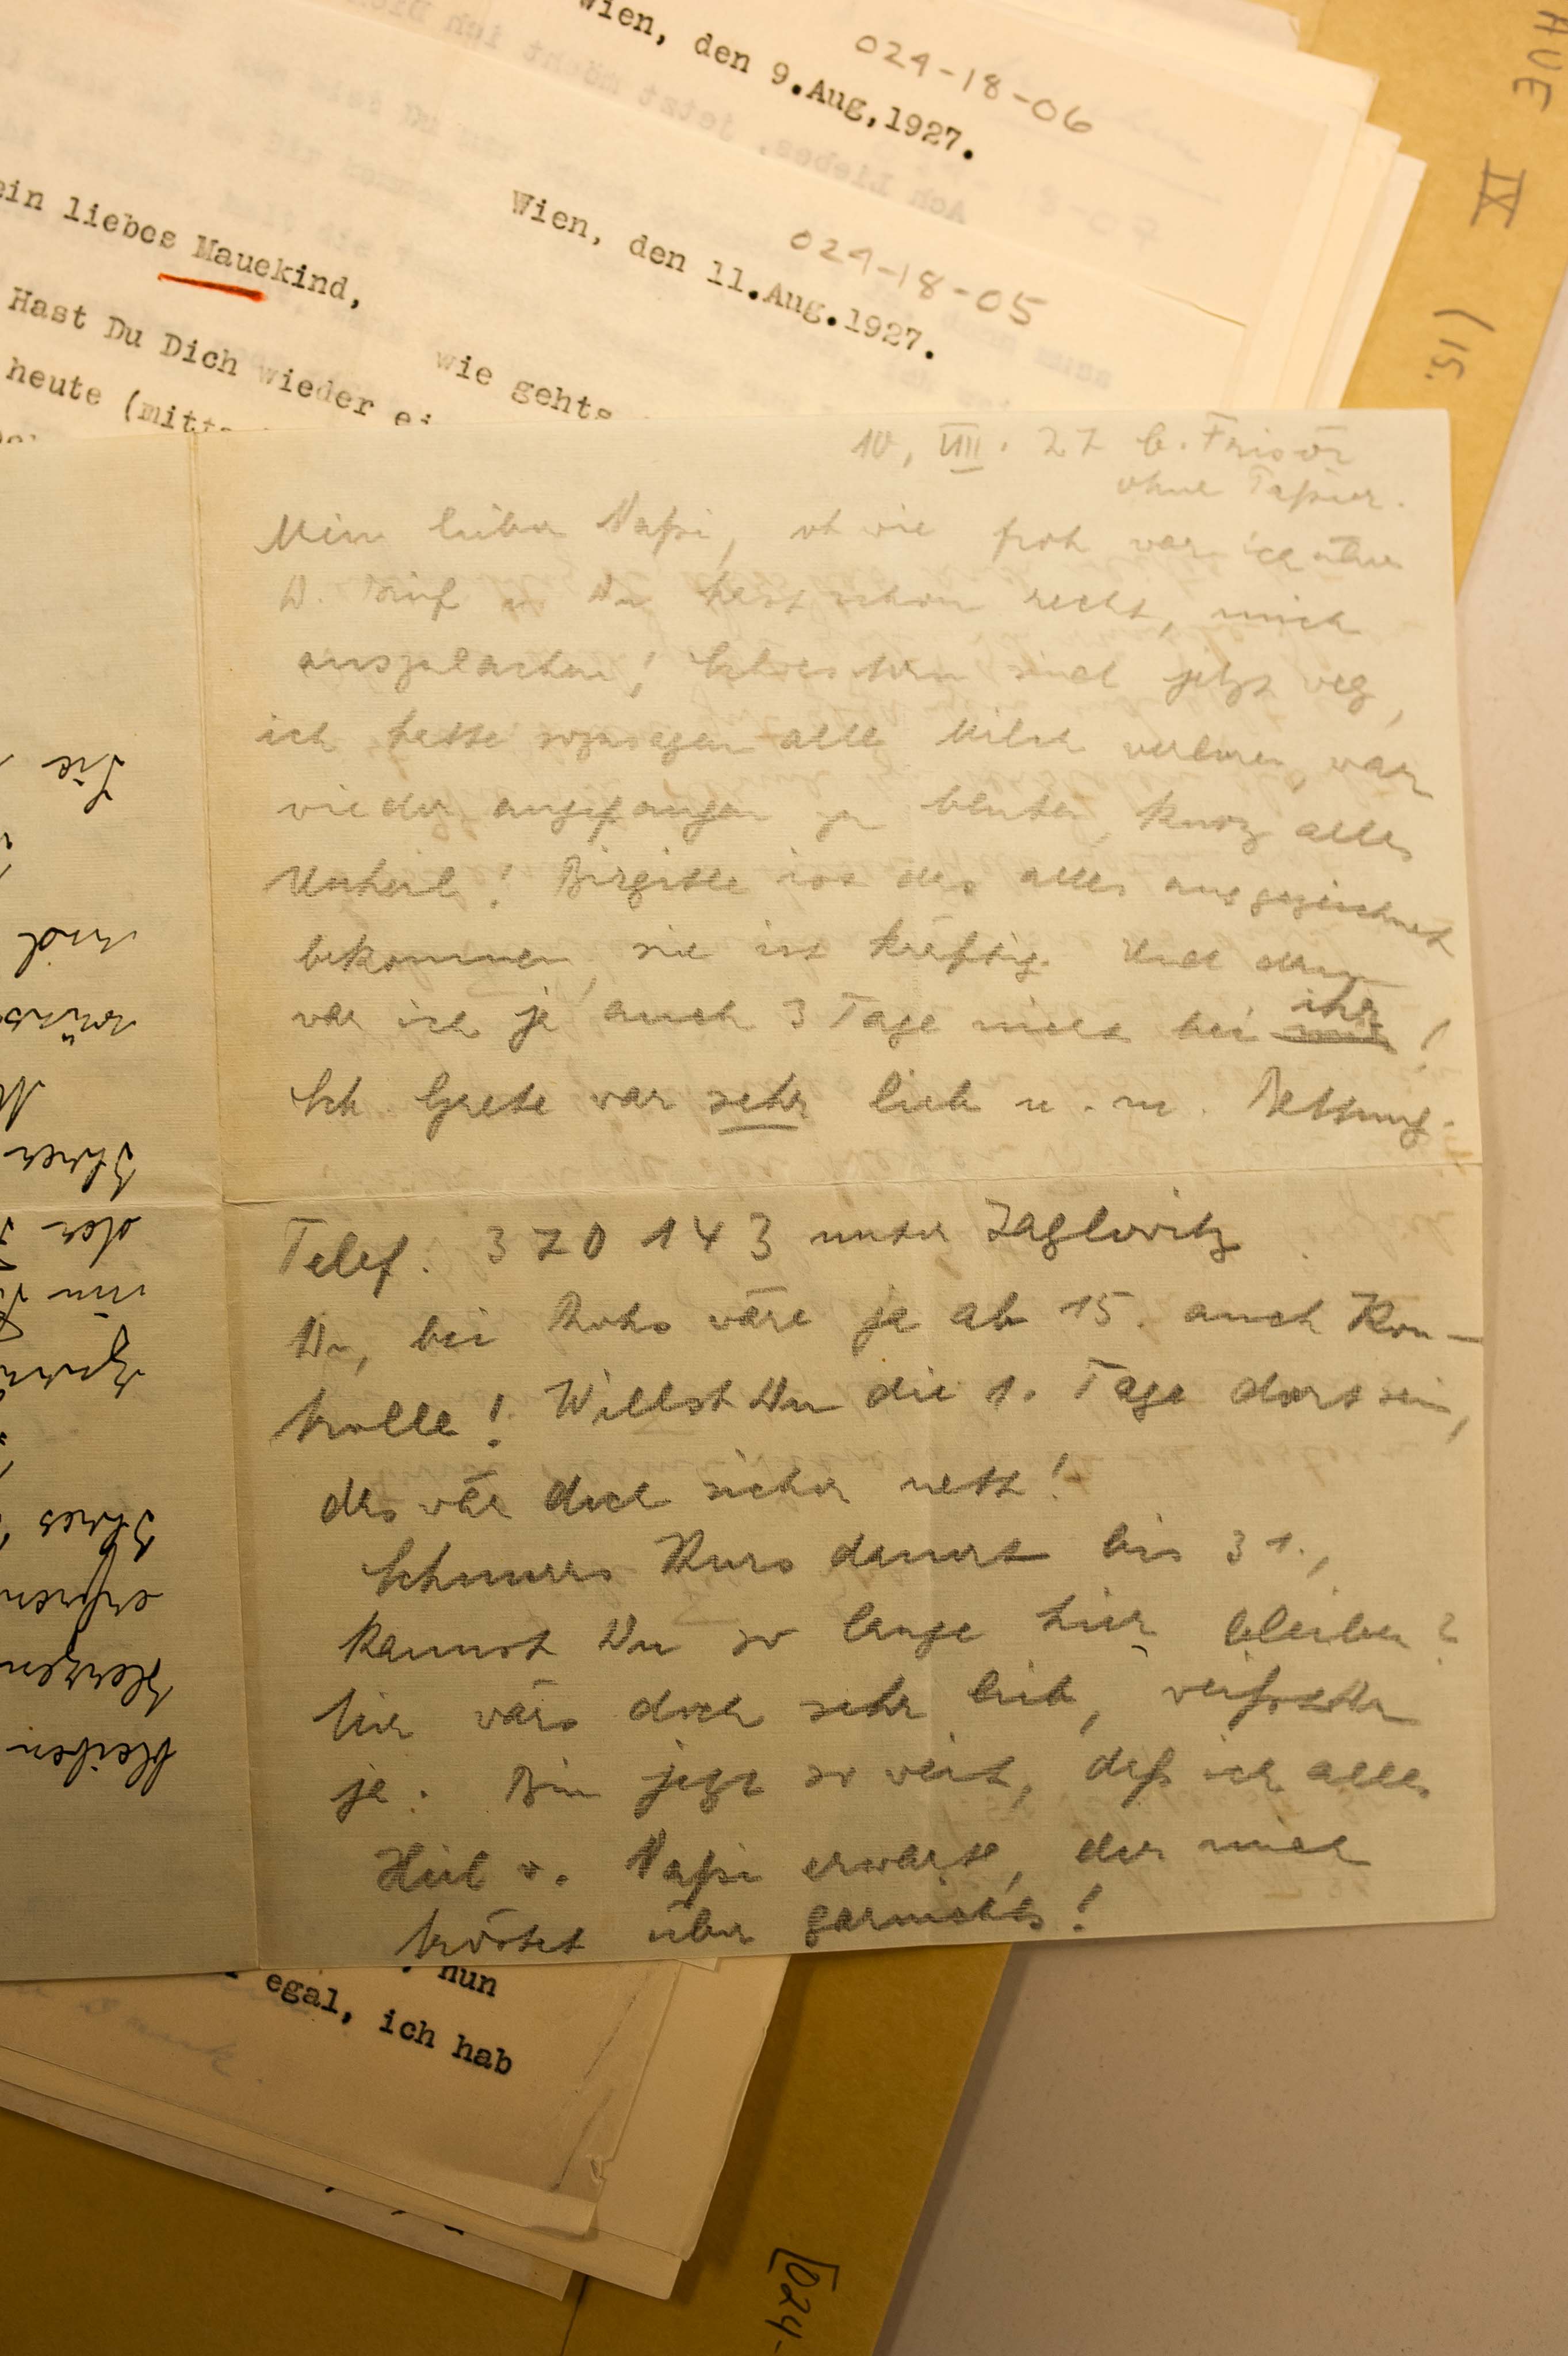 Wien, den 9.Aug,1927.
024-18-06
Wien, den 11.Aug.1927.
024-18-05
ein liebes Mauekind,
wie gehts
Hast Du Dich wieder
heute
10, VIII. 27 b. Frisör
ohne Papier.
Mein lieber Napi, oh wie froh war ich über
D. Brief u Du hast schon recht, mich
auszulachen! Schmerzen sind jetzt weg,
ich hatte sozusagen alle Milch verloren, war
wieder angefangen zu bluten, kurz alles
Unheil! Birgitte ist das alles ausgezeichnet
bekommen, sie ist kräftig. Und dann
war ich ja auch 3 Tage nicht bei ihr!
Sch. Grete war sehr lieb u. m. Rettung.
Telef. 370 143 unter
Du, bei Rohs wäre ja ab 15. auch Kon-
trolle! Willst Du die 1. Tage dort sein,
das wär doch sicher nett!
Kurs dauert bis 31.,
kannst Du so lange hier bleiben?
Mir wärs doch sehr lieb,
ja. Bin jetzt so weit, daß ich alles
Heil v. Napi erwarte, der mich
tröstet über garnichts!
nun
egal, ich hab
Sie
und
Ihren
der
Ihres
Herzen
bleiben
IX
(15.
[024-